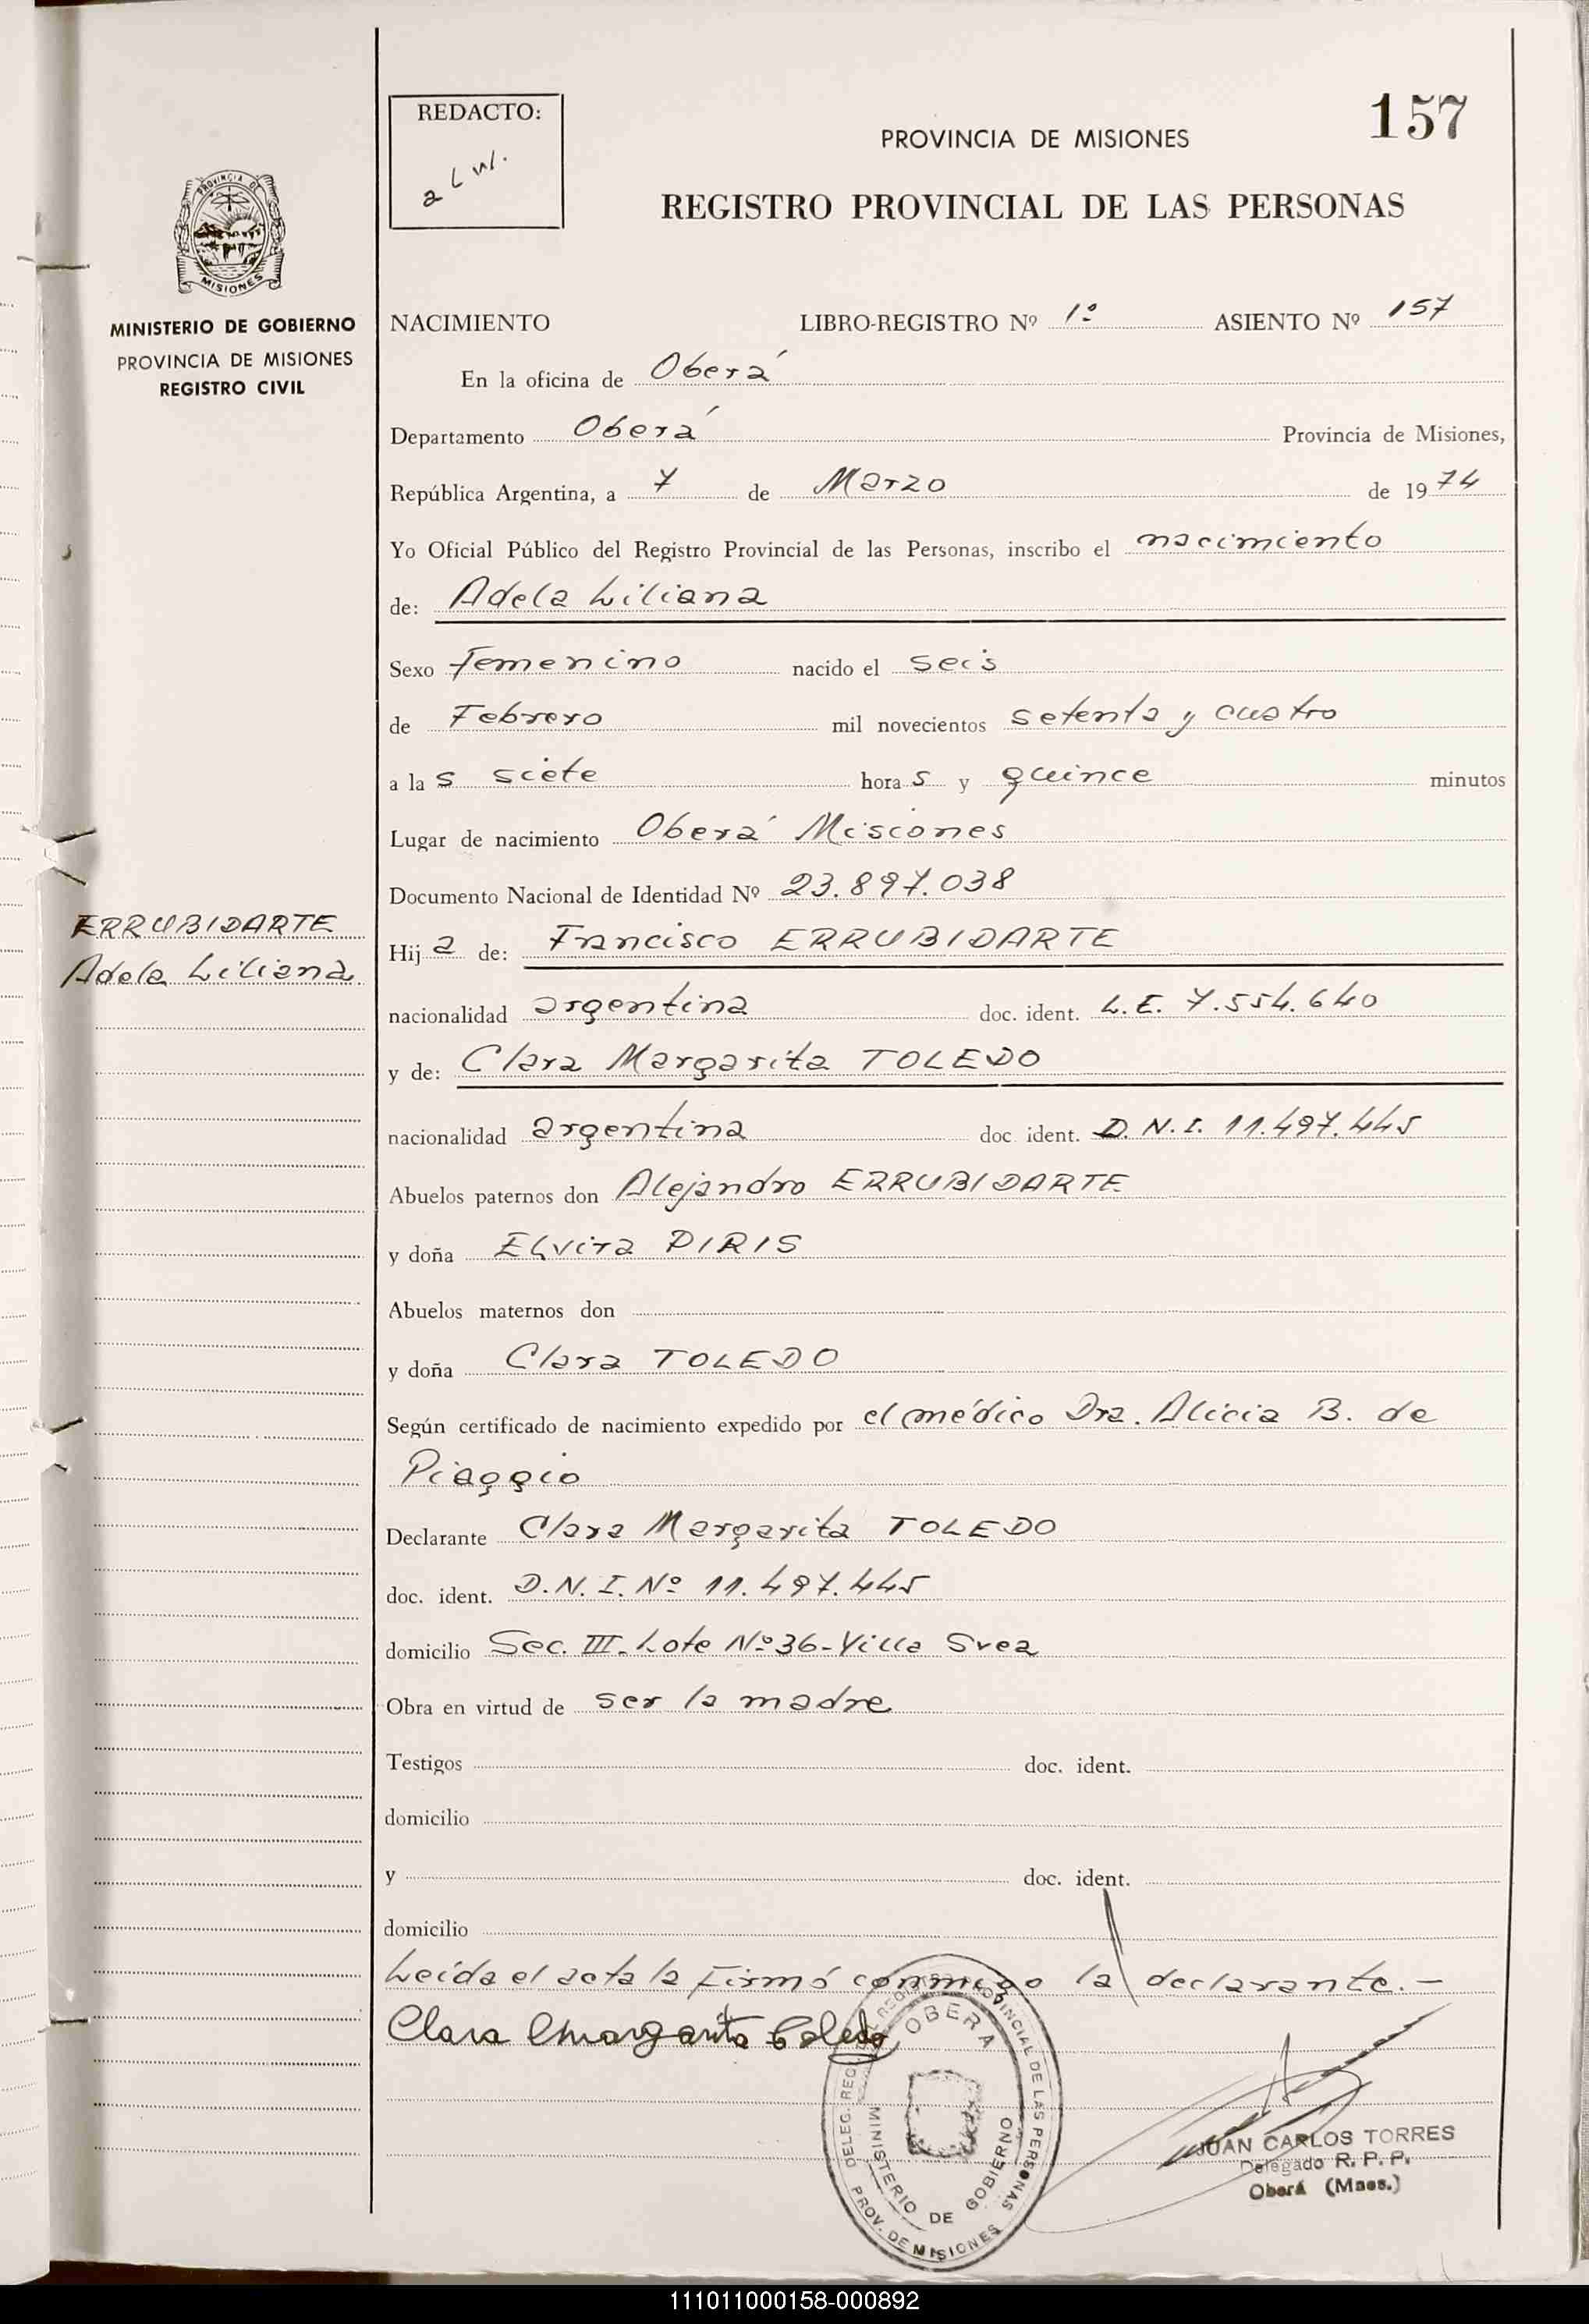 REDACTO:
157
PROVINCIA DE MISIONES
REGISTRO PROVINCIAL DE LAS PERSONAS
PROVINCIA DE
MISIONES
MINISTERIO DE GOBIERNO
PROVINCIA DE MISIONES
REGISTRO CIVIL
NACIMIENTO LIBRO-REGISTRO Nº 1º ASIENTO Nº 157
En la oficina de Oberá
Departamento Oberá Provincia de Misiones,
República Argentina, a 7 de Marzo de 1974
Yo Oficial Público del Registro Provincial de las Personas, inscribo el nacimiento
de: Adela Liliana
Sexo Femenino nacido el seis
de Febrero mil novecientos setenta y cuatro
a las siete horas y quince minutos
Lugar de nacimiento Oberá Misiones
Documento Nacional de Identidad Nº 23.897.038
ERRUBIDARTE
Adela Liliana
Hija de: Francisco ERRUBIDARTE
nacionalidad argentina doc. ident. L.E. 7.554.640
y de: Clara Margarita TOLEDO
nacionalidad argentina doc ident. D.N.I. 11.497.445
Abuelos paternos don Alejandro ERRUBIDARTE
y doña Elvira PIRIS
Abuelos maternos don
y doña Clara TOLEDO
Según certificado de nacimiento expedido por el médico Dra. Alicia B. de
Piaggio
Declarante Clara Margarita TOLEDO
doc. ident. D.N.I. Nº 11.497.445
domicilio Sec. III- Lote Nº 36- Villa Svea
Obra en virtud de ser la madre
Testigos doc. ident.
domicilio
y doc. ident.
domicilio
Leída el acta la Firmó conmigo la declarante.-
Clara Margarita Toledo
OBERA
MINISTERIO DE GOBIERNO
PROV. DE MISIONES
JUAN CARLOS TORRES
Delegado R. P. P.
Oberá (Mnes.)
111011000158-000892